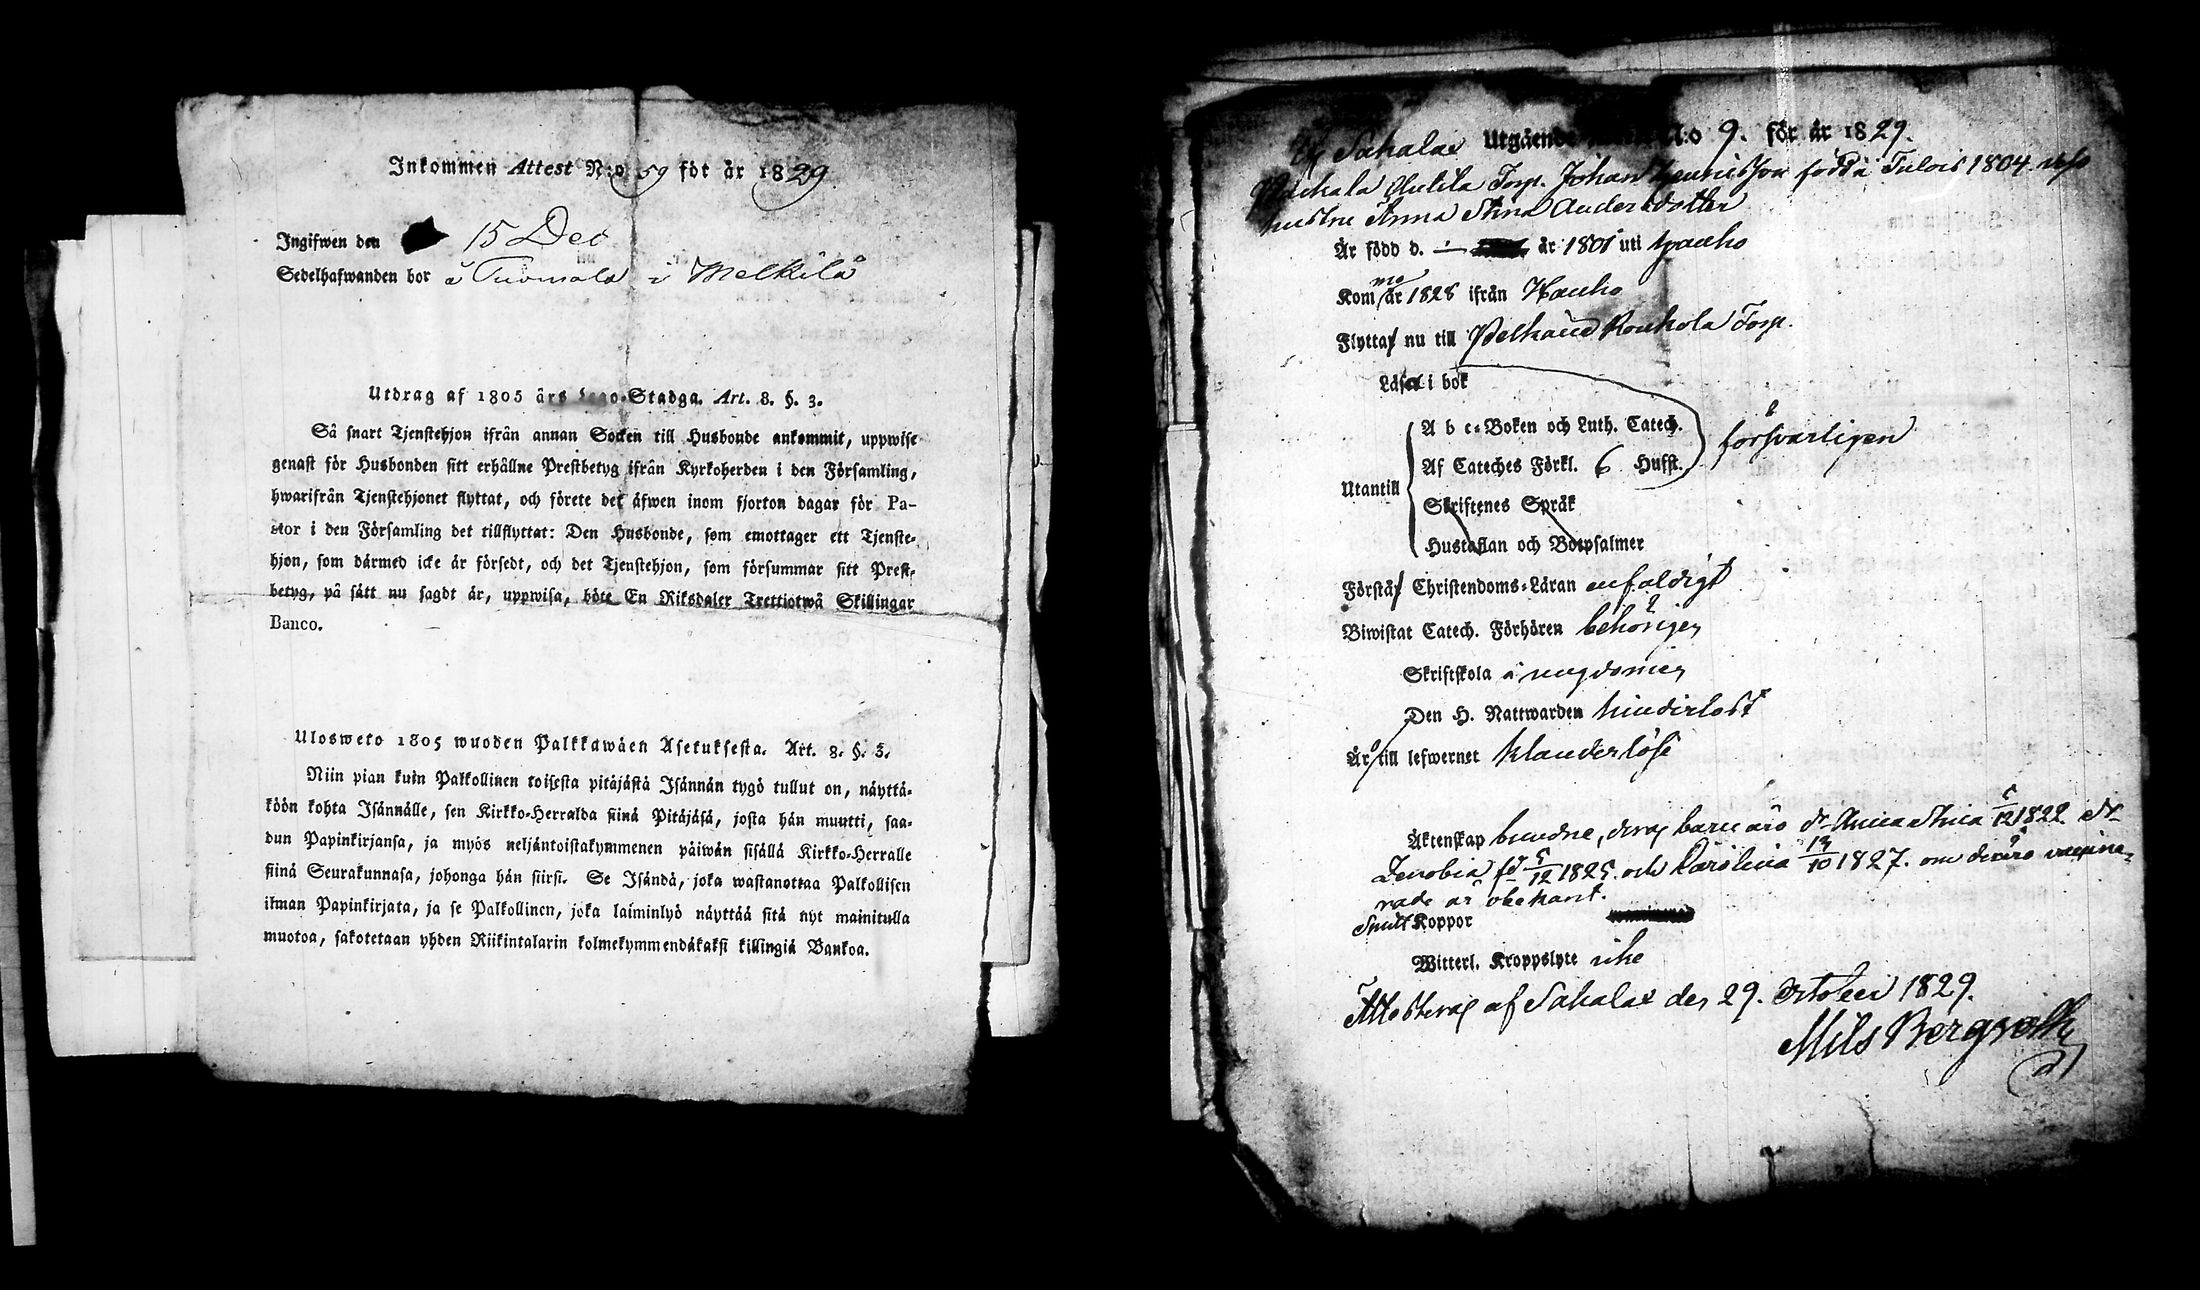 Inkommen Attest N:o 59 föt år 1829
Ingifwen den 15 Dec
Sedelhafwanden bor å Tuomala i Melkilä
Utdrag af 1805 års Lego-Stadga. Art. 8. §. 3.
Så snart Tjenstehjon ifrån annan Socken till Husbonde ankommit, uppwise
genast för Husbonden sitt erhållne Prestbetyg ifrån Kyrkoherden i den Församling,
hwarifrån Tjenstehjonet flyttat, och förete det äfwen inom fjorton dagar för Pa-
stor i den Församling det tillflyttat: Den Husbonde, som emottager ett Tjenste-
hjon, som därmed icke är försedt, och det Tjenstehjon, som försummar sitt Prest-
betyg, på sätt nu sagdt är, uppwisa, böte En Riksdaler Trettiotwå Skillingar
Banco.
Ulosweto 1805 wuoden Palkkawäen Asetuksesta. Art. 8. §. 3.
Niin pian kuin Palkollinen toisesta pitäjästä Isännän tygö tullut on, näyttä-
köön kohta Isännälle, sen Kirkko-Herralda siinä Pitäjäsä, josta hän muutti, saa-
dun Papinkirjansa, ja myös neljäntoistakymmenen päiwän sisällä Kirkko-Herralle
siinä Seurakunnasa, johonga hän siirsi. Se Isändä, joka wastanottaa Palkollisen
ilman Papinkirjata, ja se Palkollinen, joka laiminlyö näyttää sitä nyt mainitulla
muotoa, sakotetaan yhden Riikintalarin kolmekymmendäkaksi killingiä Bankoa.
Sahalax Utgående N:o 9. för år 1829.
Anttila Torp. Johan Henricsson född i Tulois 1804 och
hustru Anna Stina Andersdotter
Är född d. år 1801 uti Hauho
Kommo år 1828 ifrån Hauho
Flytta nu till Pelkäne Roukola Torp.
Läsa i bok
Utantill
A b c-Boken och Luth. Catech.
Af Cateches Förkl. 6 Hufst.
försvarligen
Skriftenes Språk
Hustaflan och Botpsalmer
Förstå Christendoms-Läran enfaldigt
Biwistat Catech. Förhören behörigen
Skriftskola i ungdomen
Den H. Nattwarden hinderlöst
Äro till lefwernet klanderlöse
Äktenskap bundne, deras barn äro dr Anna Stina 12 1822 dr
Zenobia fd 5/12 1825. och Karolina 13/10 1827. om de äro vaccine-
rade är obekant.
Smitt Koppor
Witterl. Kroppslyte icke
Attesteras af Sahalax den 29. October 1829.
Nils Bergroth